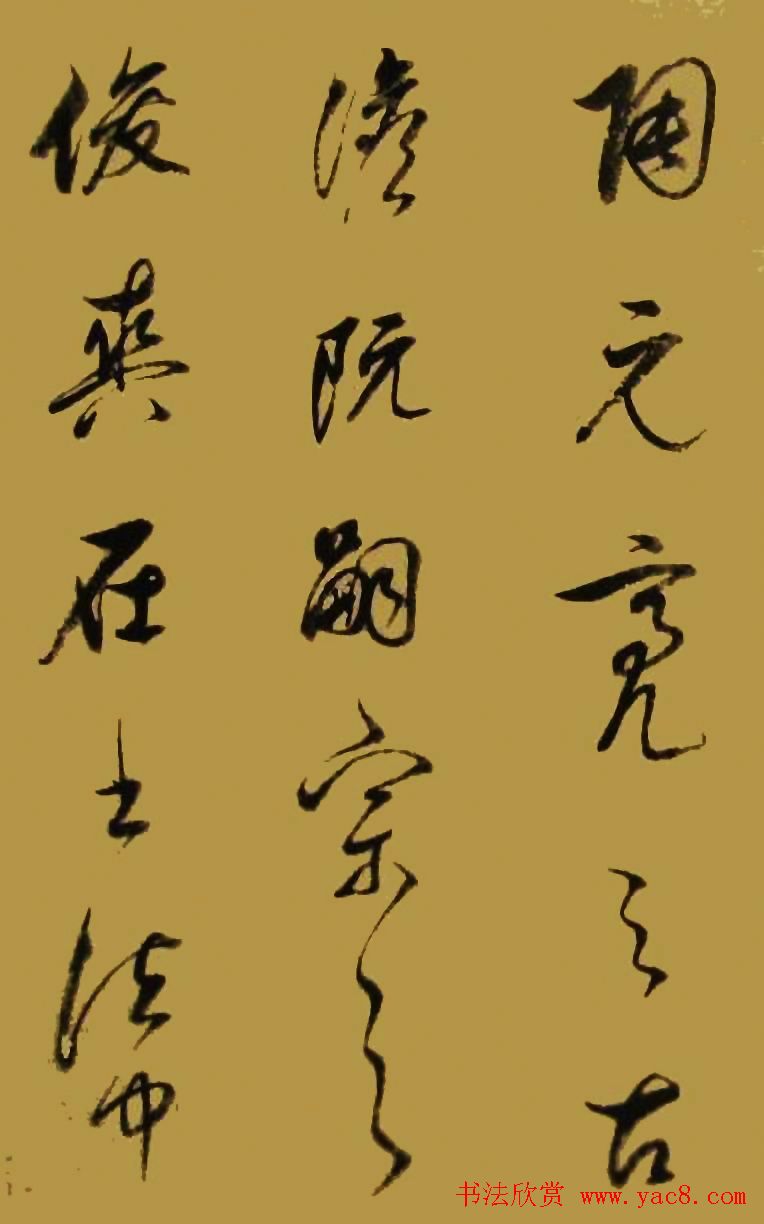 陶元亮之古
澹阮嗣宗之
俊爽在書法中
书法欣赏 www.yac8.com